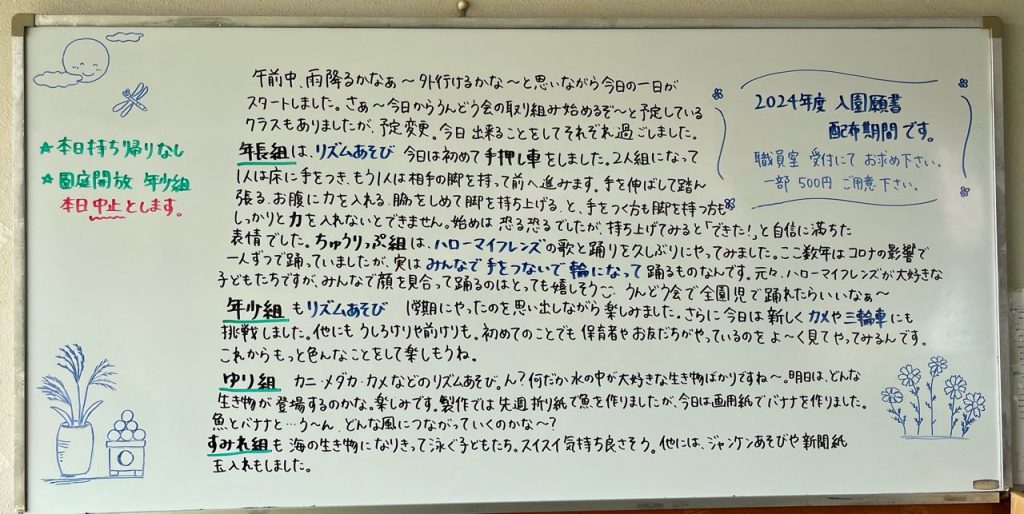 ★本日持ち帰りなし
★園庭開放 年少組
本日中止とします。
午前中、雨降るかなぁ〜外行けるかな〜と思いながら今日の一日が
スタートしました。さぁ〜今日からうんどう会の取り組み始めるぞ〜と予定している
クラスもありましたが、予定変更。今日出来ることをしてそれぞれ過ごしました。
年長組は、リズムあそび 今日は初めて手押し車をしました。2人組になって
1人は床に手をつき、もう1人は相手の脚を持って前へ進みます。手を伸ばして踏ん
張る、お腹に力を入れる、脇をしめて脚を持ち上げる、と、手をつく方も脚を持つ方も
しっかりと力を入れないとできません。始めは恐る恐るでしたが、持ち上げてみると「できた!」と自信に満ちた
表情でした。ちゅうりっぷ組は、ハローマイフレンズの歌と踊りを久しぶりにやってみました。ここ数年はコロナの影響で
一人ずつで踊っていましたが、実はみんなで手をつないで輪になって踊るものなんです。元々、ハローマイフレンズが大好きな
子どもたちですが、みんなで顔を見合って踊るのはとっても嬉しそう♡ うんどう会で全園児で踊れたらいいなぁ〜
年少組もリズムあそび 1学期にやったのを思い出しながら楽しみました。さらに今日は新しくカメや三輪車にも
挑戦しました。他にもうしろけりや前けりも。初めてのことでも保育者やお友だちがやっているのをよ〜く見てやってみるんです。
これからもっと色んなことをして楽しもうね。
ゆり組 カニ・メダカ・カメなどのリズムあそび。ん?何だか水の中が大好きな生き物ばかりですね〜。明日は、どんな
生き物が登場するのかな。楽しみです。製作では先週折り紙で魚を作りましたが、今日は画用紙でバナナを作りました。
魚とバナナと…う〜ん、どんな風につながっていくのかな〜?
すみれ組も海の生き物になりきって泳ぐ子どもたち。スイスイ気持ち良さそう。他には、ジャンケンあそびや新聞紙
玉入れもしました。
2024年度 入園願書
配布期間です。
職員室 受付にて お求め下さい。
一部 500円 ご用意下さい。